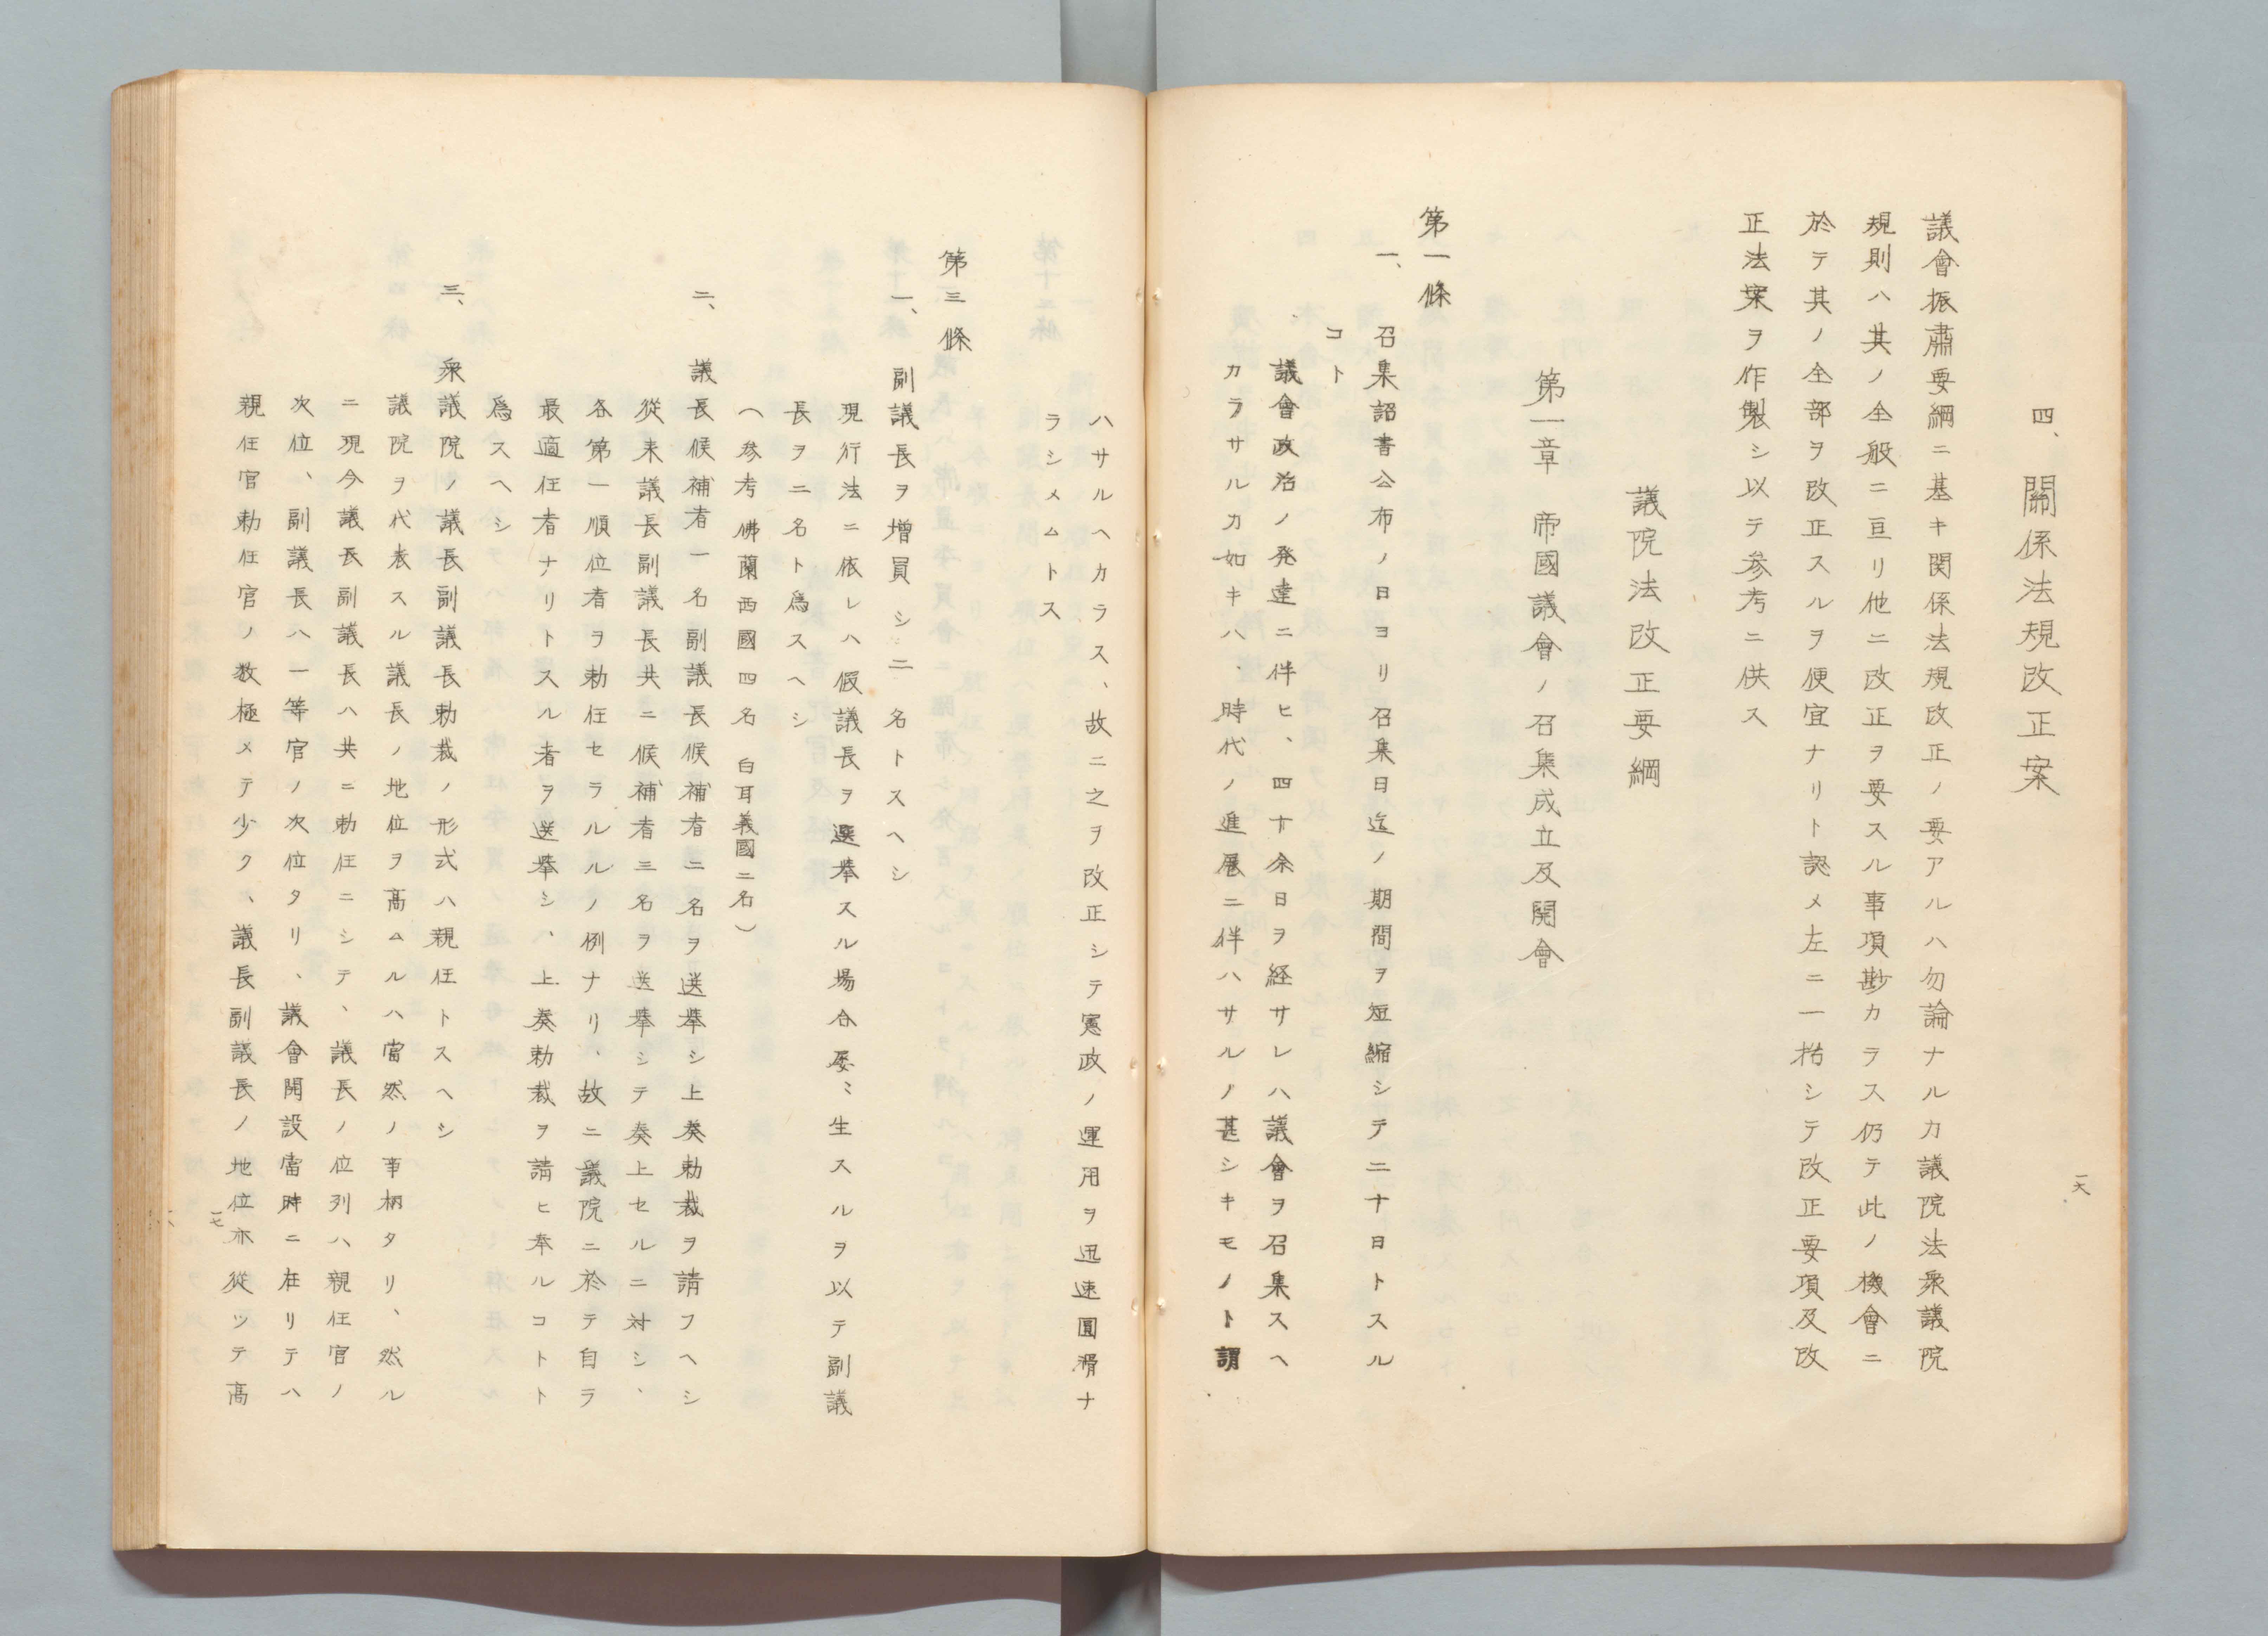 四、關係法規改正案
議會振肅要綱ニ基キ関係法規改正ノ要アルハ勿論ナルカ議院法衆議院
規則ハ其ノ全般ニ亘リ他ニ改正ヲ要スル事項尠カラス仍テ此ノ機會ニ
於テ其ノ全部ヲ改正スルヲ便宜ナリト認メ左ニ一括シテ改正要項及改
正法案ヲ作製シ以テ参考ニ供ス
議院法改正要綱
第一章 帝國議會ノ召集成立及開會
第一條
一、召集詔書公布ノ日ヨリ召集日迄ノ期間ヲ短縮シテ二十日トスル
コト
議會政治ノ発達ニ伴ヒ、四十余日ヲ経サレハ議會ヲ召集スヘ
カラサルカ如キハ、時代ノ進展ニ伴ハサルノ甚シキモノト謂
一六
ハサルヘカラス、故ニ之ヲ改正シテ憲政ノ運用ヲ迅速圓滑ナ
ラシメムトス
第三條
一、副議長ヲ増員シ二名トスヘシ
現行法ニ依レハ假議長ヲ選挙スル場合屡〻生スルヲ以テ副議
長ヲ二名ト爲スヘシ
（参考佛蘭西國四名 白耳義國二名）
二、議長候補者一名副議長候補者二名ヲ選挙シ上奏勅裁ヲ請フヘシ
從来議長副議長共ニ候補者三名ヲ選挙シテ奏上セルニ対シ、
各第一順位者ヲ勅任セラルルノ例ナリ、故ニ議院ニ於テ自ラ
最適任者ナリトスル者ヲ選挙シ、上奏勅裁ヲ請ヒ奉ルコトト
爲スヘシ
三、衆議院ノ議長副議長勅裁ノ形式ハ親任トスヘシ
議院ヲ代表スル議長ノ地位ヲ高ムルハ當然ノ事柄タリ、然ル
ニ現今議長副議長ハ共ニ勅任ニシテ、議長ノ位列ハ親任官ノ
次位、副議長ハ一等官ノ次位タリ、議會開設當時ニ在リテハ
親任官勅任官ノ数極メテ少ク、議長副議長ノ地位亦從ツテ高
一七